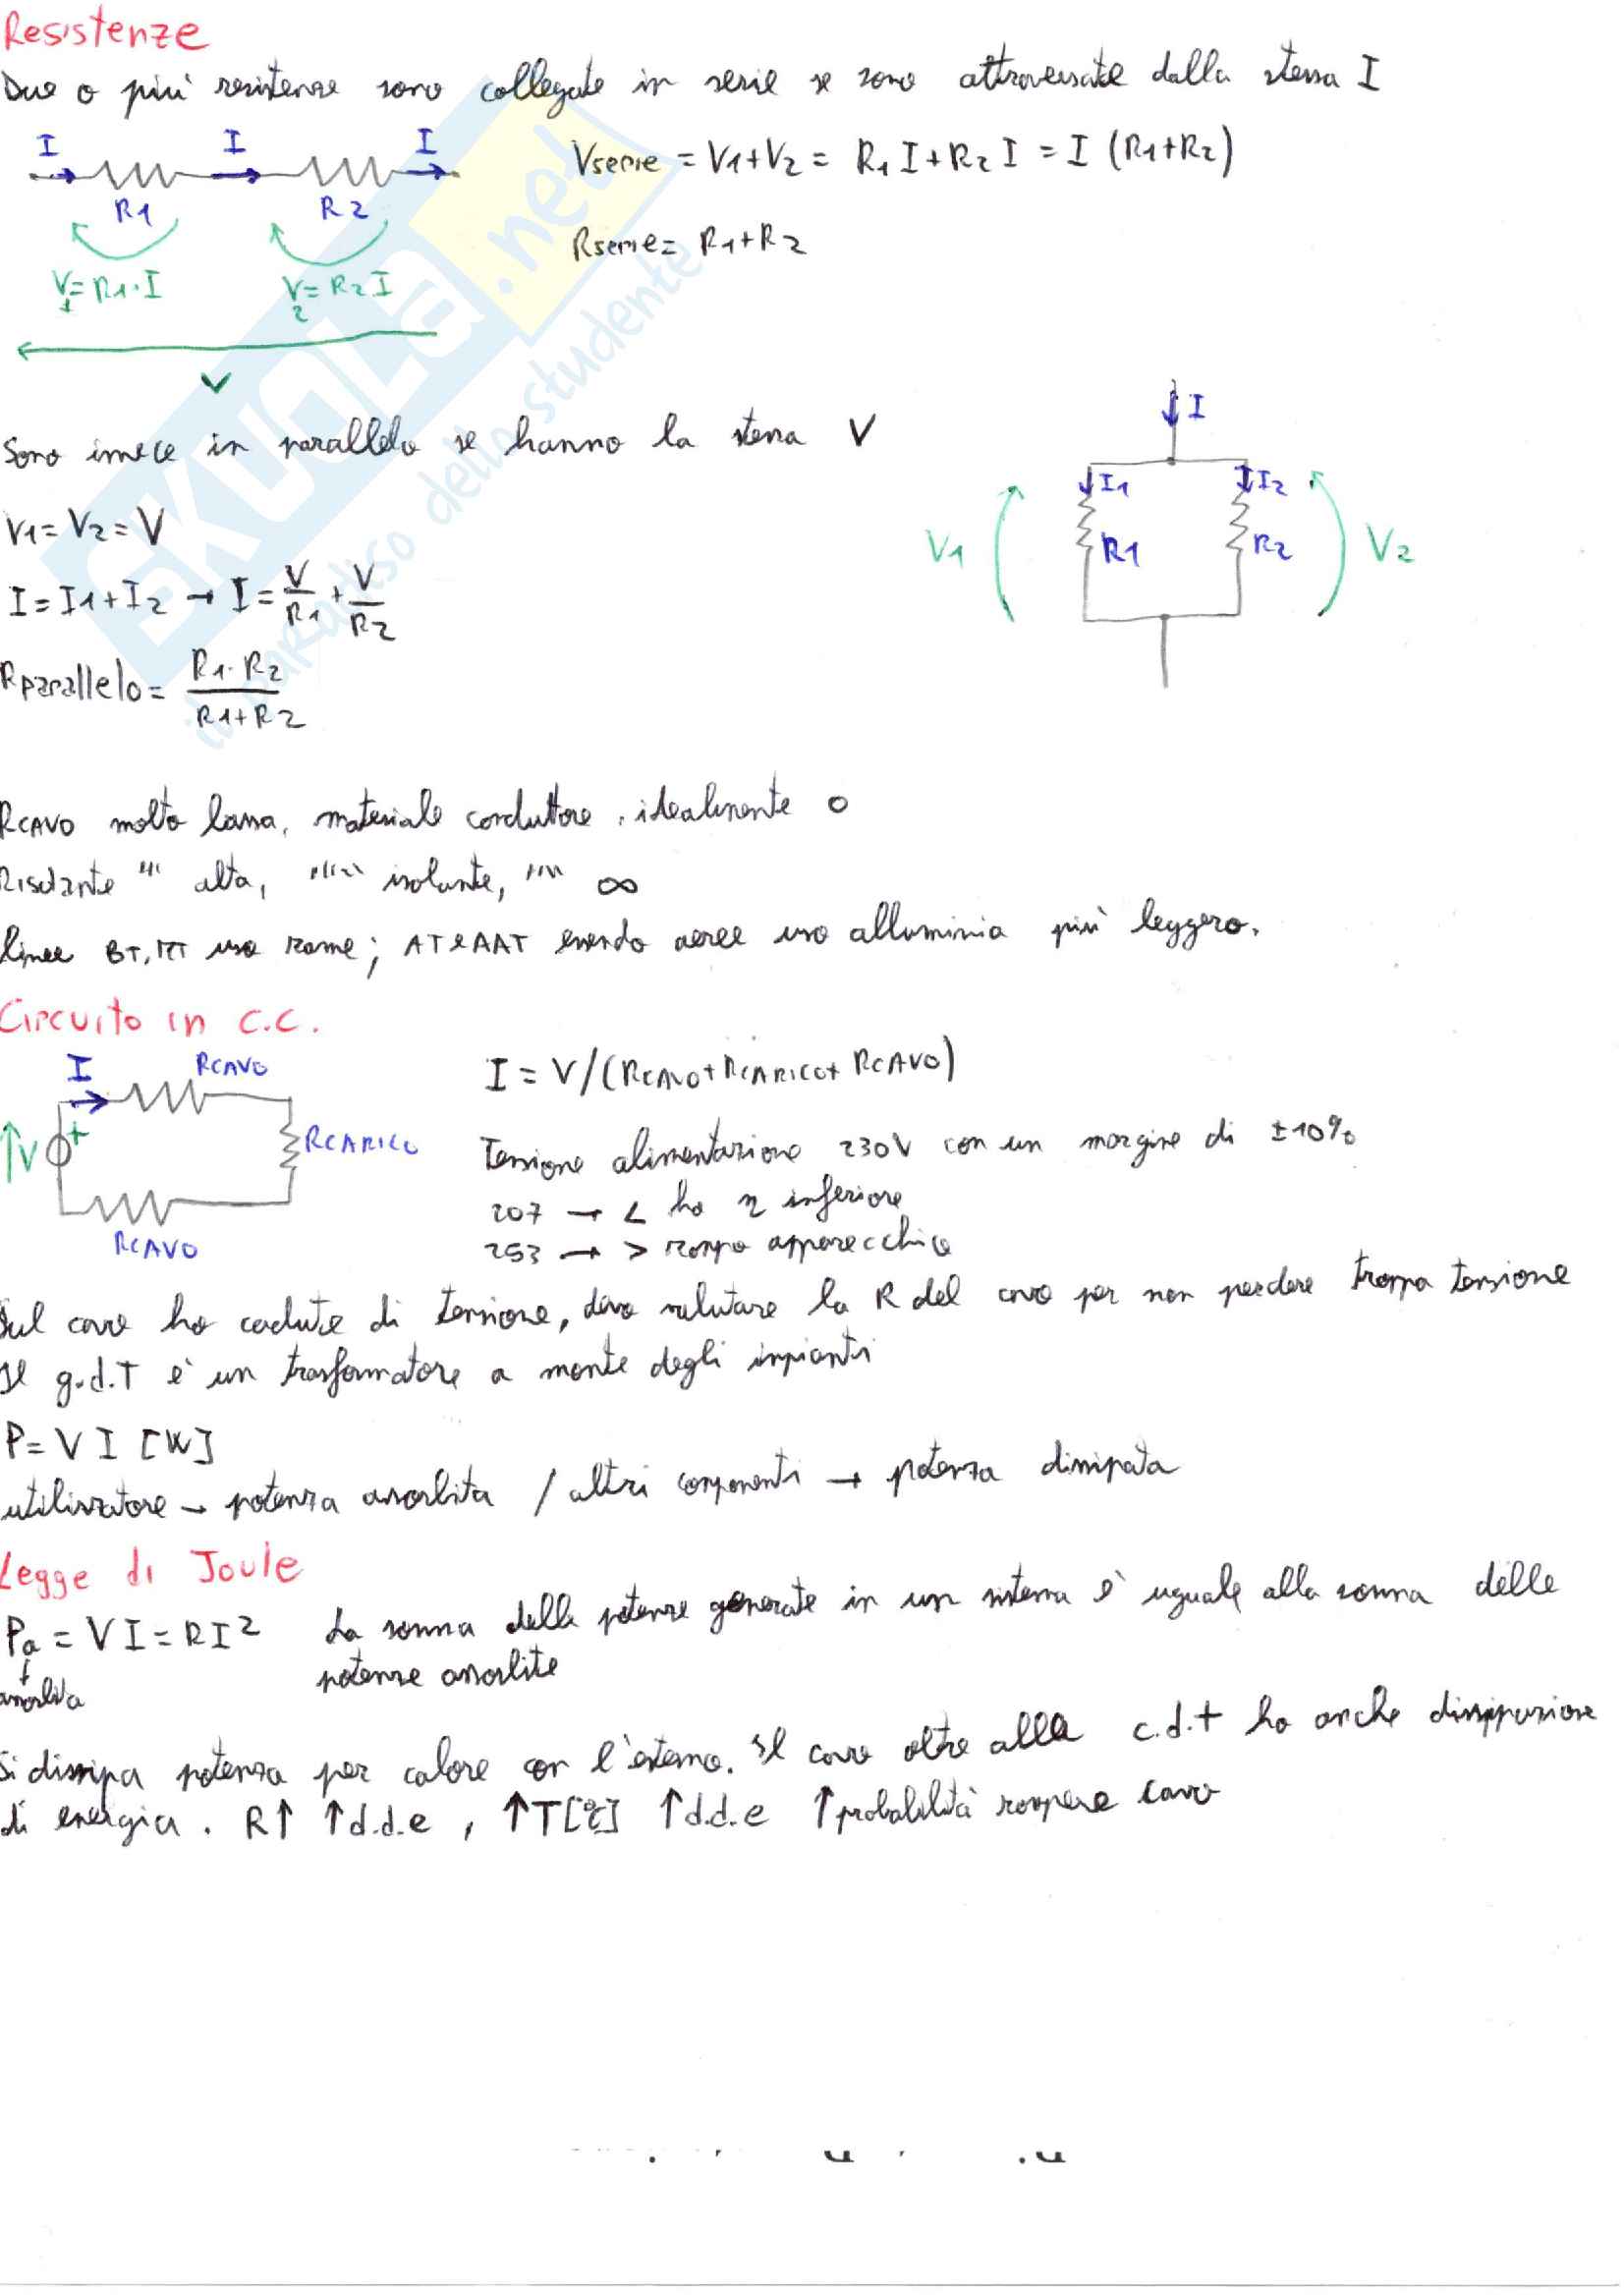 Resistenze
Due o più resistenze sono collegate in serie se sono attraversate dalla stessa I
I I I
R1 R2
Vserie = V1+V2 = R1 I+R2 I = I (R1+R2)
Rserie= R1+R2
V1=R1·I V2=R2 I
V
Sono invece in parallelo se hanno la stessa V
V1=V2=V
I=I1+I2 → I=V/R1+V/R2
Rparallelo= R1·R2/R1+R2
I
I1 I2
V1 R1 R2 V2
RCAVO molto bassa, materiale conduttore, idealmente 0
Risolante "" alta, "" isolante, "" ∞
linee BT, MT uso rame; AT e AAT essendo aeree uso alluminio più leggero.
Circuito in c.c.
I RCAVO
V + RCARICO
RCAVO
I = V/(RCAVO+RCARICO+RCAVO)
Tensione alimentazione 230V con un margine di ±10%
207 → < ho η inferiore
253 → > rompo apparecchio
Sul cavo ho cadute di tensione, devo valutare la R del cavo per non perdere troppa tensione
Il g.d.T è un trasformatore a monte degli impianti
P= V I [W]
utilizzatore → potenza assorbita / altri componenti → potenza dissipata
Legge di Joule
Pa = V I = R I²
↓
assorbita
La somma delle potenze generate in un sistema è uguale alla somma delle
potenze assorbite
Si dissipa potenza per calore con l'esterno. Il cavo oltre alla c.d.t ho anche dissipazione
di energia. R↑ ↑d.d.e, ↑T[°C] ↑d.d.e ↑probabilità rompere cavo
SKUOLA.net
il paradiso dello studente